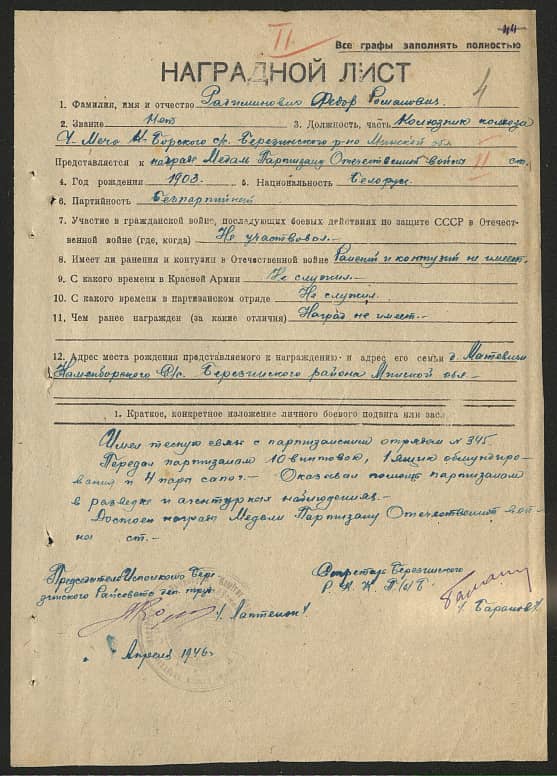 44
II.
Все графы заполнять полностью
НАГРАДНОЙ ЛИСТ
4
1. Фамилия, имя и отчество Федор Романович.
2. Звание Нет 3. Должность, часть колхоза
Березинского р-но Минской обл
Представляется к награде Медали Партизану Отечественной война II ст.
4. Год рождения 1903. 5. Национальность Белорус.
6. Партийность Безпартийный
7. Участие в гражданской войне, последующих боевых действиях по защите СССР в Отечест-
венной войне (где, когда) Не участвовал.-
8. Имеет ли ранения и контузии в Отечественной войне Ранений и контузий не имеет.
9. С какого времени в Красной Армии Не служил.-
10. С какого времени в партизанском отряде Не служил.
11. Чем ранее награжден (за какие отличия) Наград не имеет.-
12. Адрес места рождения представляемого к награждению и адрес его семьи д. Матевичи
с/с. Березинского района Минской обл-
1. Краткое, конкретное изложение личного боевого подвига или засл
Имел тесную связь с партизанским отрядом N 345
Передал партизанам 10 винтовок, 1 ящик обмундиро-
вания и 4 пары сапог.- Оказывал помощь партизанам
в разведке и агентурных наблюдениях.-
Достоен награде Медали Партизану Отечественной вой-
ны ст.-
Председатель Исполкома Бере-
зинского Райсовета деп. труд
/. Лаптенок /
Секретарь Березинского
Р. К. К. П/б/Б.
/. Баранов /.
" Апреля 1946 г